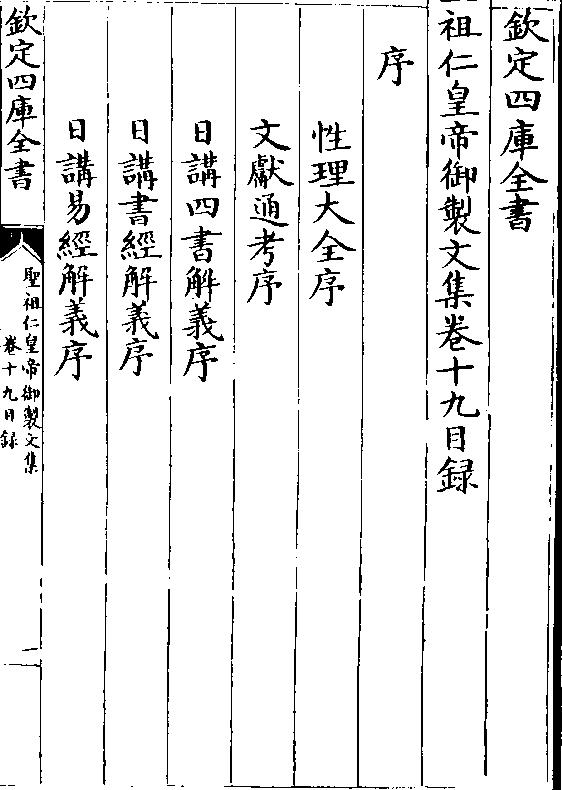 欽定四庫全書
祖仁皇帝御製文集卷十九目録
序
性理大全序
文獻通考序
日講四書解義序
日講書經解義序
日講易經解義序
欽定四庫全書
聖祖仁皇帝御製文集
卷十九目録
一